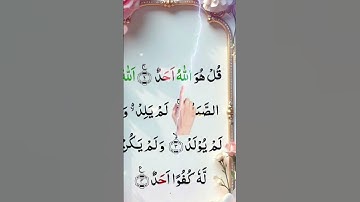 قُلْ هُوَ اللّٰهُ اَحَدٌ ۚ‏﴿۱﴾ اَللّٰهُ
لَمْ يَلِدْ ۙ
لَمْ يُوْلَدْ ۙ‏﴿۳﴾ وَلَمْ يَكُنْ
لَّهٗ كُفُوًا اَحَدٌ ‏﴿۴﴾